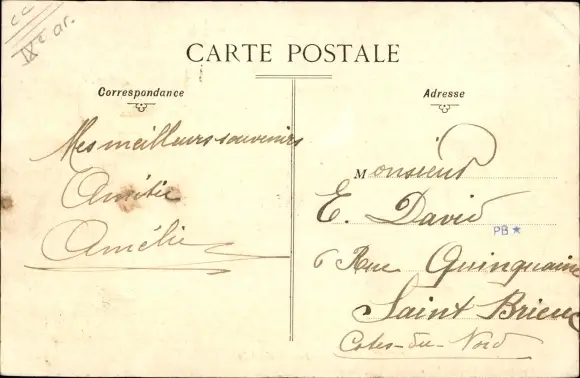 cc
IXe ar.
CARTE POSTALE
Correspondance
Adresse
Mes meilleurs souvenirs
Amitié
Amélie
Monsieur
E. David
PB★
6 Rue Quinquaine
Saint Brieuc
Cotes-du-Nord